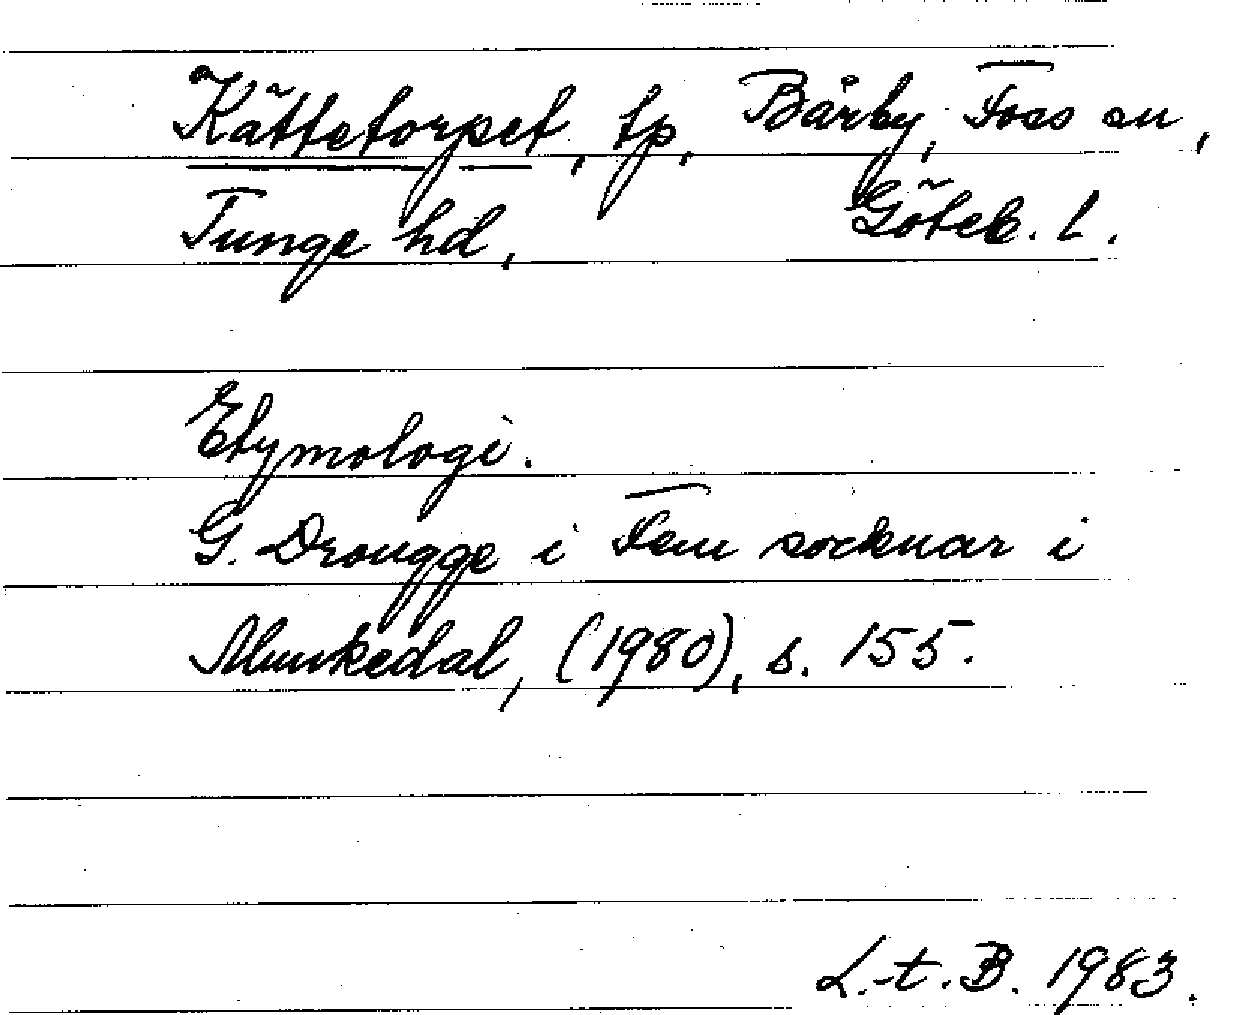 Kättetorpet, tp, Bärby, Foss sn,
Tunge hd, Göteb. l.
Etymologi.
G. Drougge i Fem socknar i
Munkedal, (1980), s. 155.
L.-t. B. 1983.